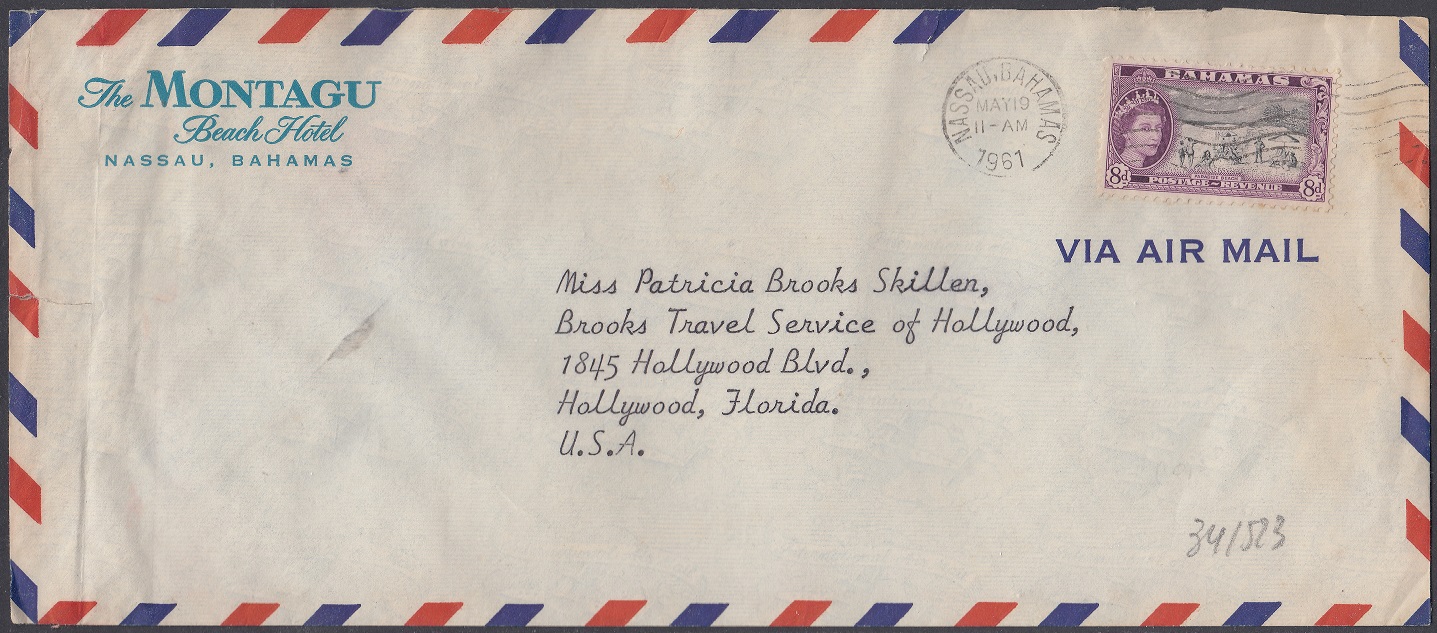 The MONTAGU
Beach Hotel
NASSAU, BAHAMAS
NASSAU, BAHAMAS
MAY 19
11-AM
1961
BAHAMAS
8d
POSTAGE-REVENUE
8d
VIA AIR MAIL
Miss Patricia Brooks Skillen,
Brooks Travel Service of Hollywood,
1845 Hollywood Blvd.,
Hollywood, Florida.
U.S.A.
34/523